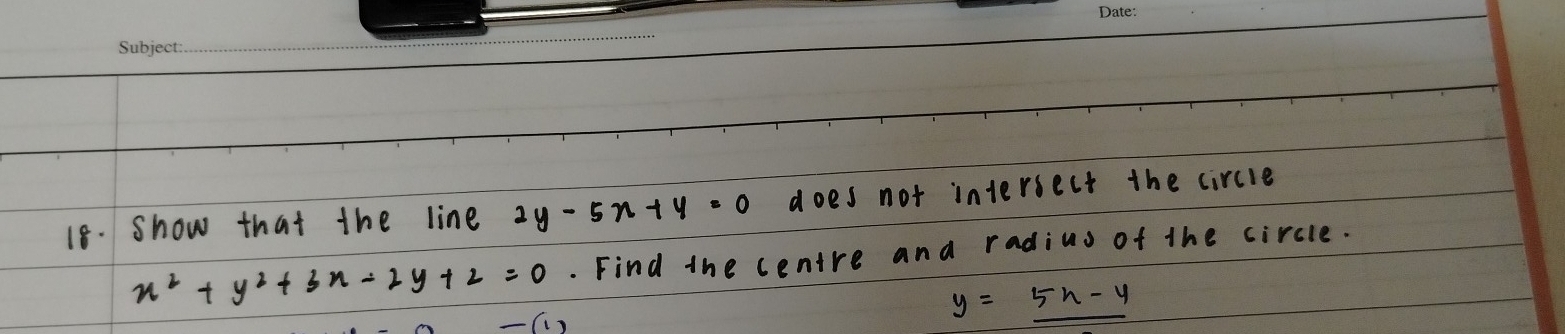 Subject:
Date:
18. Show that the line 2y - 5x + 4 = 0 does not intersect the circle
x² + y² + 3x - 2y + 2 = 0. Find the centre and radius of the circle.
y = 5x - 4
= 0 - (1)